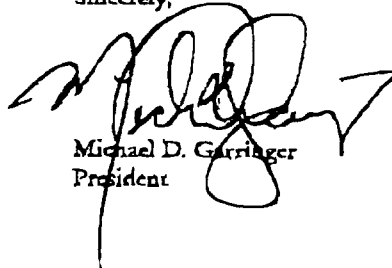 Sincerely,
Michael D. Garringer
President